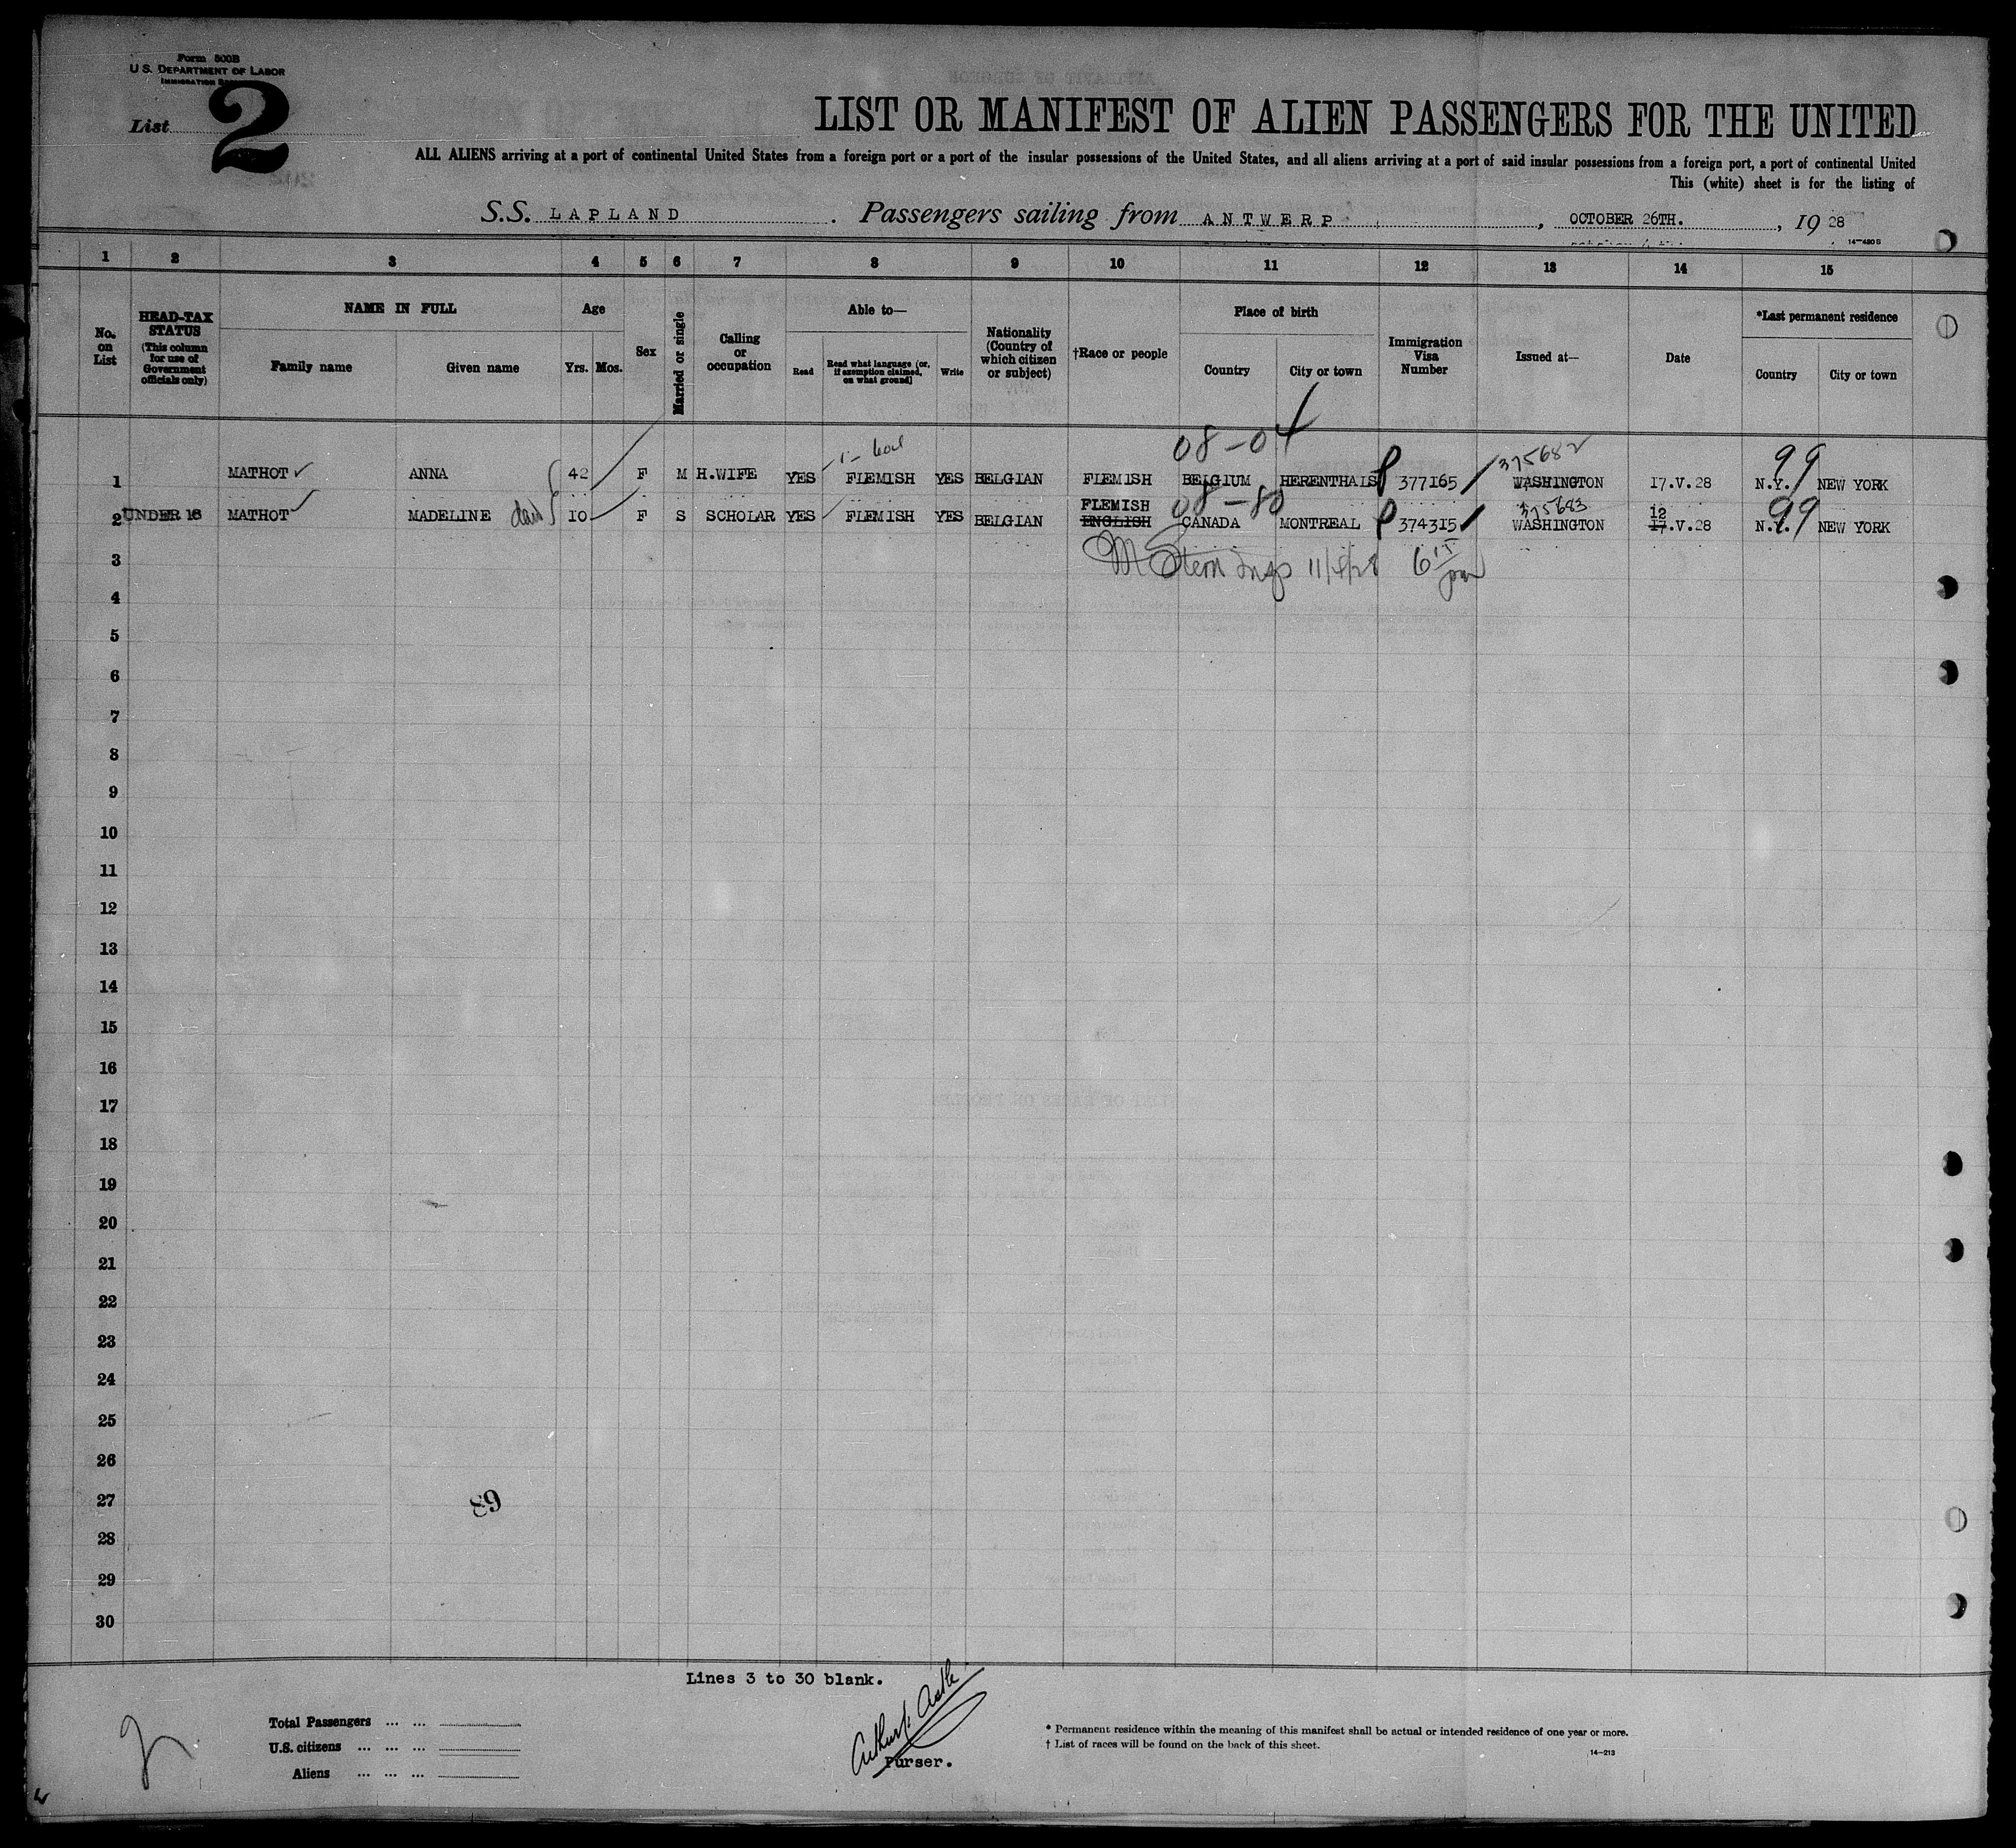 Form 500B
U.S. DEPARTMENT OF LABOR
List 2
LIST OR MANIFEST OF ALIEN PASSENGERS FOR THE UNITED
ALL ALIENS arriving at a port of continental United States from a foreign port or a port of the insular possessions of the United States, and all aliens arriving at a port of said insular possessions from a foreign port, a port of continental United
This (white) sheet is for the listing of
S.S. LAPLAND . Passengers sailing from ANTWERP , OCTOBER 26TH. , 19 28
14-480 B
1 2 3 4 5 6 7 8 9 10 11 12 13 14 15
No. on List
HEAD-TAX STATUS (This column for use of Government officials only)
NAME IN FULL
Family name Given name
Age
Yrs. Mos.
Sex
Married or single
Calling or occupation
Able to—
Read Read what language (or, if exemption claimed, on what ground) Write
Nationality (Country of which citizen or subject)
†Race or people
Place of birth
Country City or town
Immigration Visa Number
Issued at—
Date
*Last permanent residence
Country City or town
08-04 375682 99
1 MATHOT ANNA 42 F M H.WIFE YES FLEMISH YES BELGIAN FLEMISH BELGIUM HERENTHALS 377165 WASHINGTON 17.V.28 N.Y. NEW YORK
FLEMISH 08-80 375683 12 99
2 UNDER 16 MATHOT MADELINE dau 10 F S SCHOLAR YES FLEMISH YES BELGIAN ENGLISH CANADA MONTREAL 374315 WASHINGTON 17.V.28 N.Y. NEW YORK
3 M Stern Insp
4
5
6
7
8
9
10
11
12
13
14
15
16
17
18
19
20
21
22
23
24
25
26
27 89
28
29
30
Lines 3 to 30 blank.
Total Passengers ... ...
U.S. citizens ... ... ...
Aliens ... ... ...
Purser.
* Permanent residence within the meaning of this manifest shall be actual or intended residence of one year or more.
† List of races will be found on the back of this sheet.
14-213